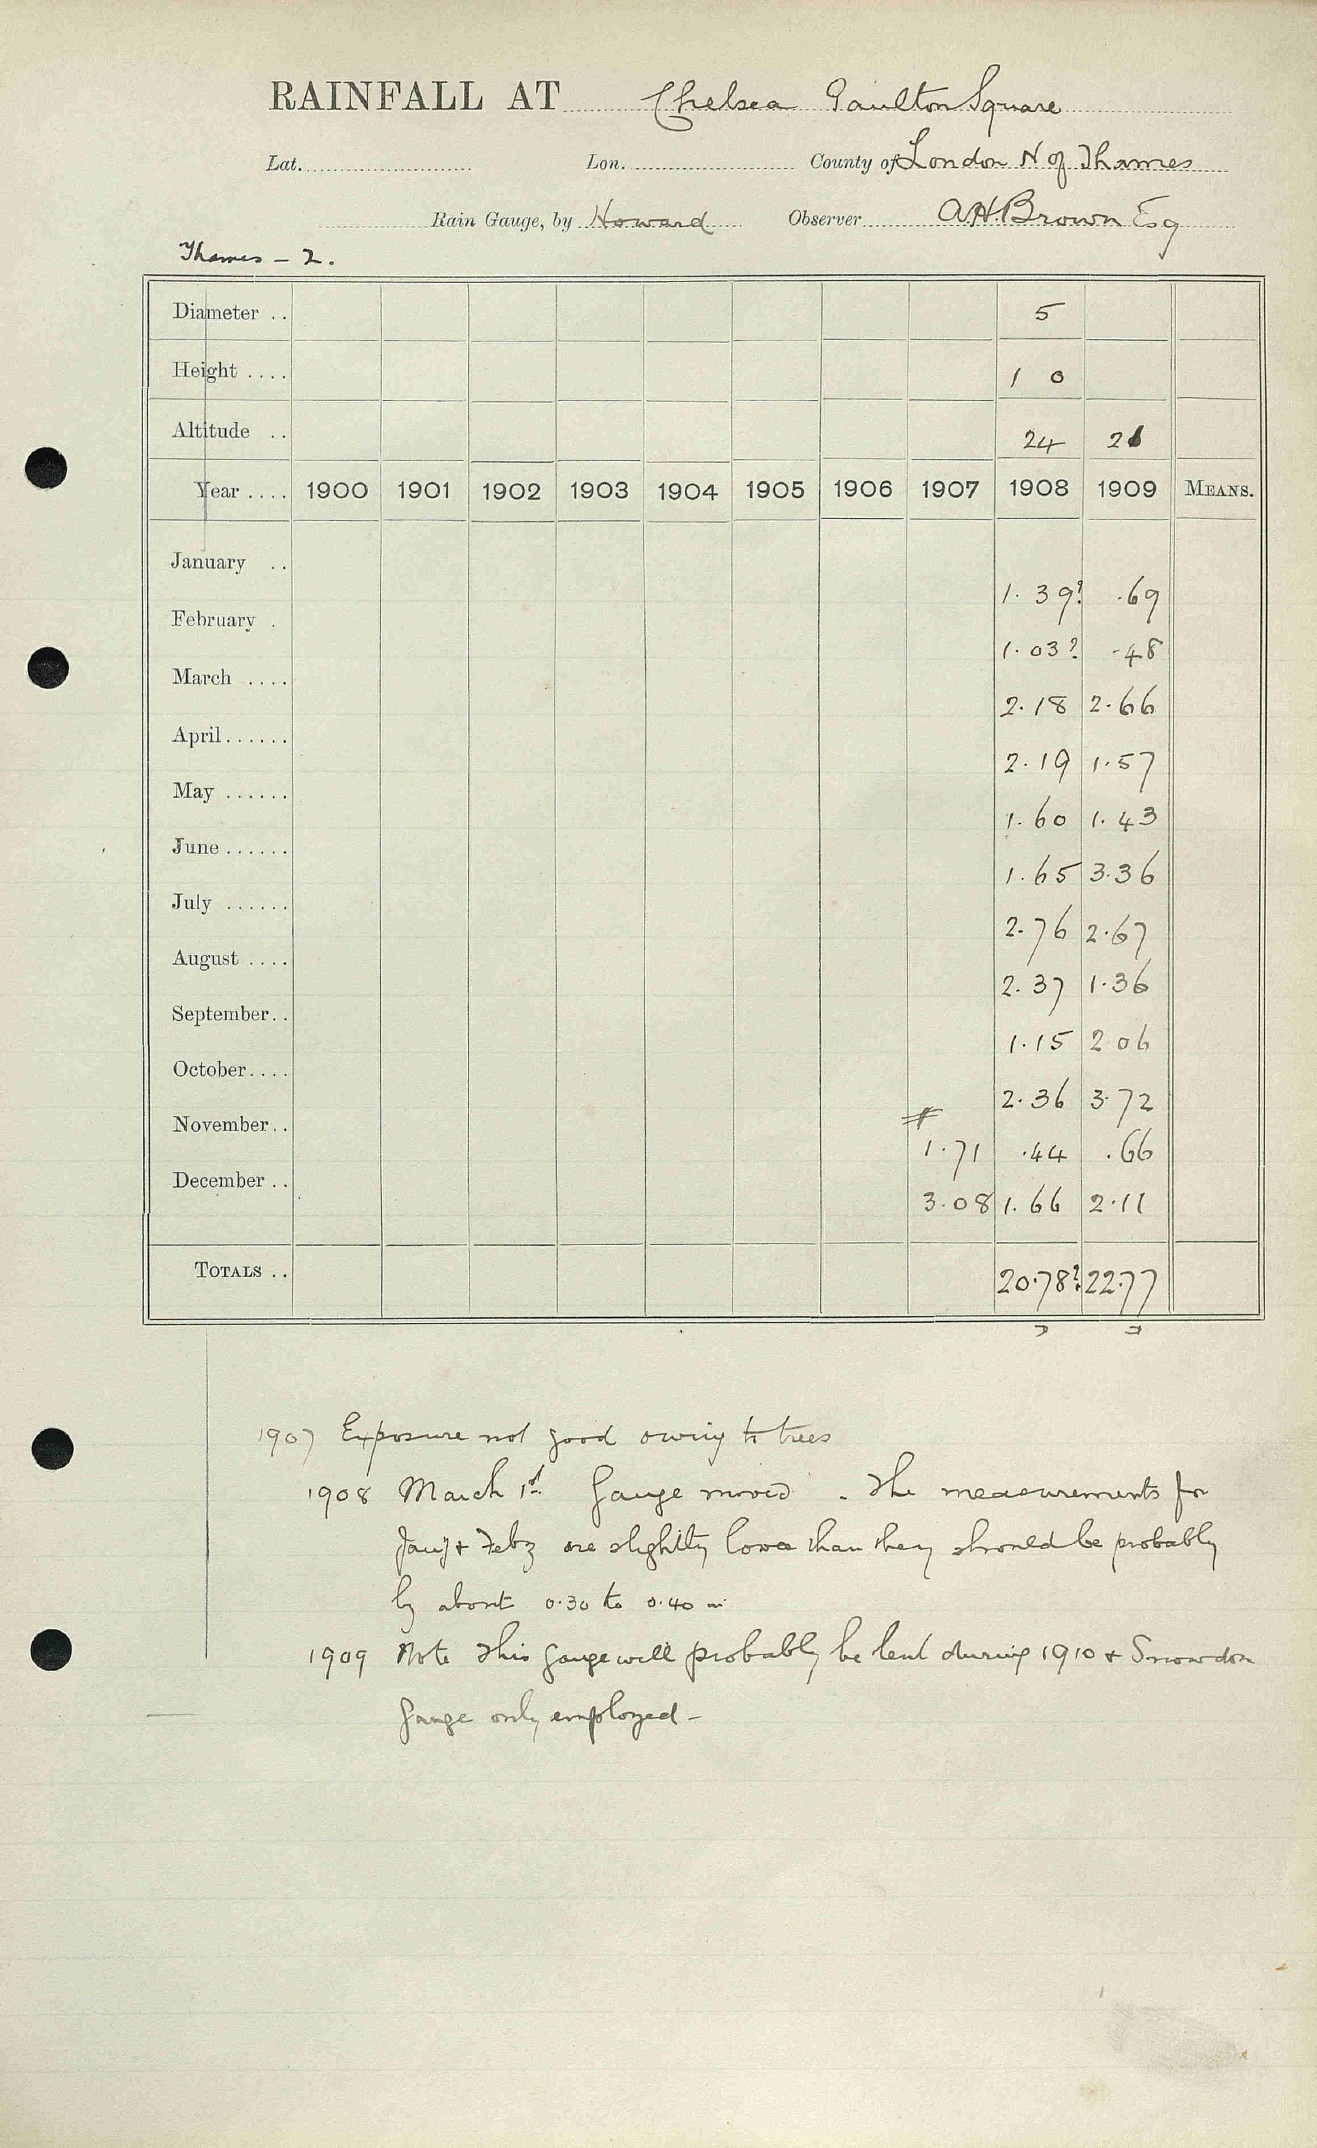 RAINFALL AT Chelsea Paulton Square
Lat. Lon. County of London N of Thames
Rain Gauge, by Howard Observer A.H. Brown Esq
Thames - 2.
Diameter .. 5
Height .... 1 0
Altitude .. 24
Year .... 1900 1901 1902 1903 1904 1905 1906 1907 1908 1909 MEANS.
January .. 1.39? .69
February . 1.03? .48
March .... 2.18 2.66
April...... 2.19 1.57
May ...... 1.60 1.43
June ...... 1.65 3.36
July ...... 2.76 2.67
August .... 2.37 1.36
September.. 1.15 2 06
October.... 2.36 3.72
November.. 1.71 .44 .66
December .. 3.08 1.66 2.11
TOTALS .. 20.78? 22.77
1907 Exposure not good owing to trees
1908 March 1st. Gauge moved. The measurements for
Jany + Feby are slightly lower than they should be probably
by about 0.30 to 0.40 in
1909 Note This gauge will probably be lent during 1910 + Snowdon
gauge only employed -